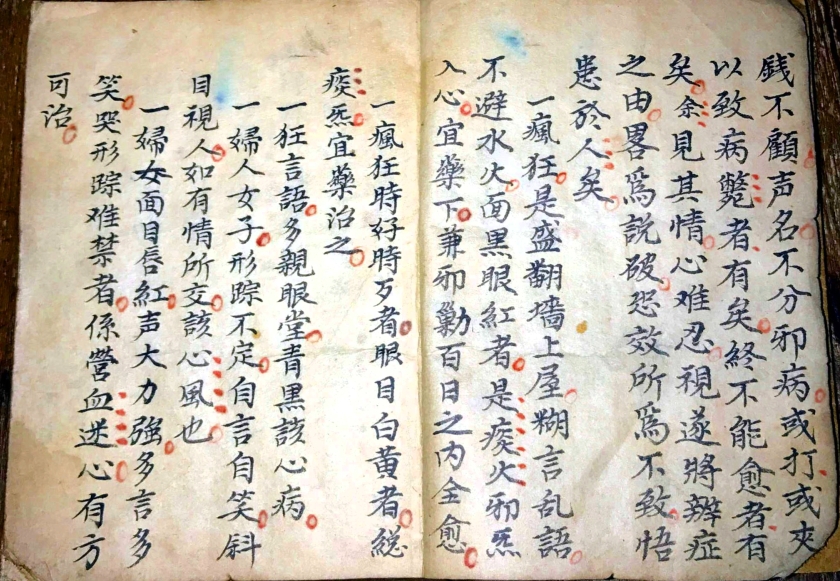 銭不顧声名不分邪病或打或夾
以致病斃者有矣終不能愈者有
矣余見其情心难忍視遂將辨症
之由畧爲説破恐效所爲不致悟
患於人矣
一瘋狂是盛翻墻上屋糊言乱語
不避水火面黑眼紅者是痰火邪炁
入心宜藥下兼邪勦百日之内全愈
一瘋狂時好時歹者眼目白黄者総
痰炁宜藥治之
一狂言語多親眼堂青黑該心病
一婦人女子形踪不定自言自笑斜
目視人如有情所交該心風也
一婦女面目唇紅声大力強多言多
笑哭形踪难禁者係營血迷心有方
可治